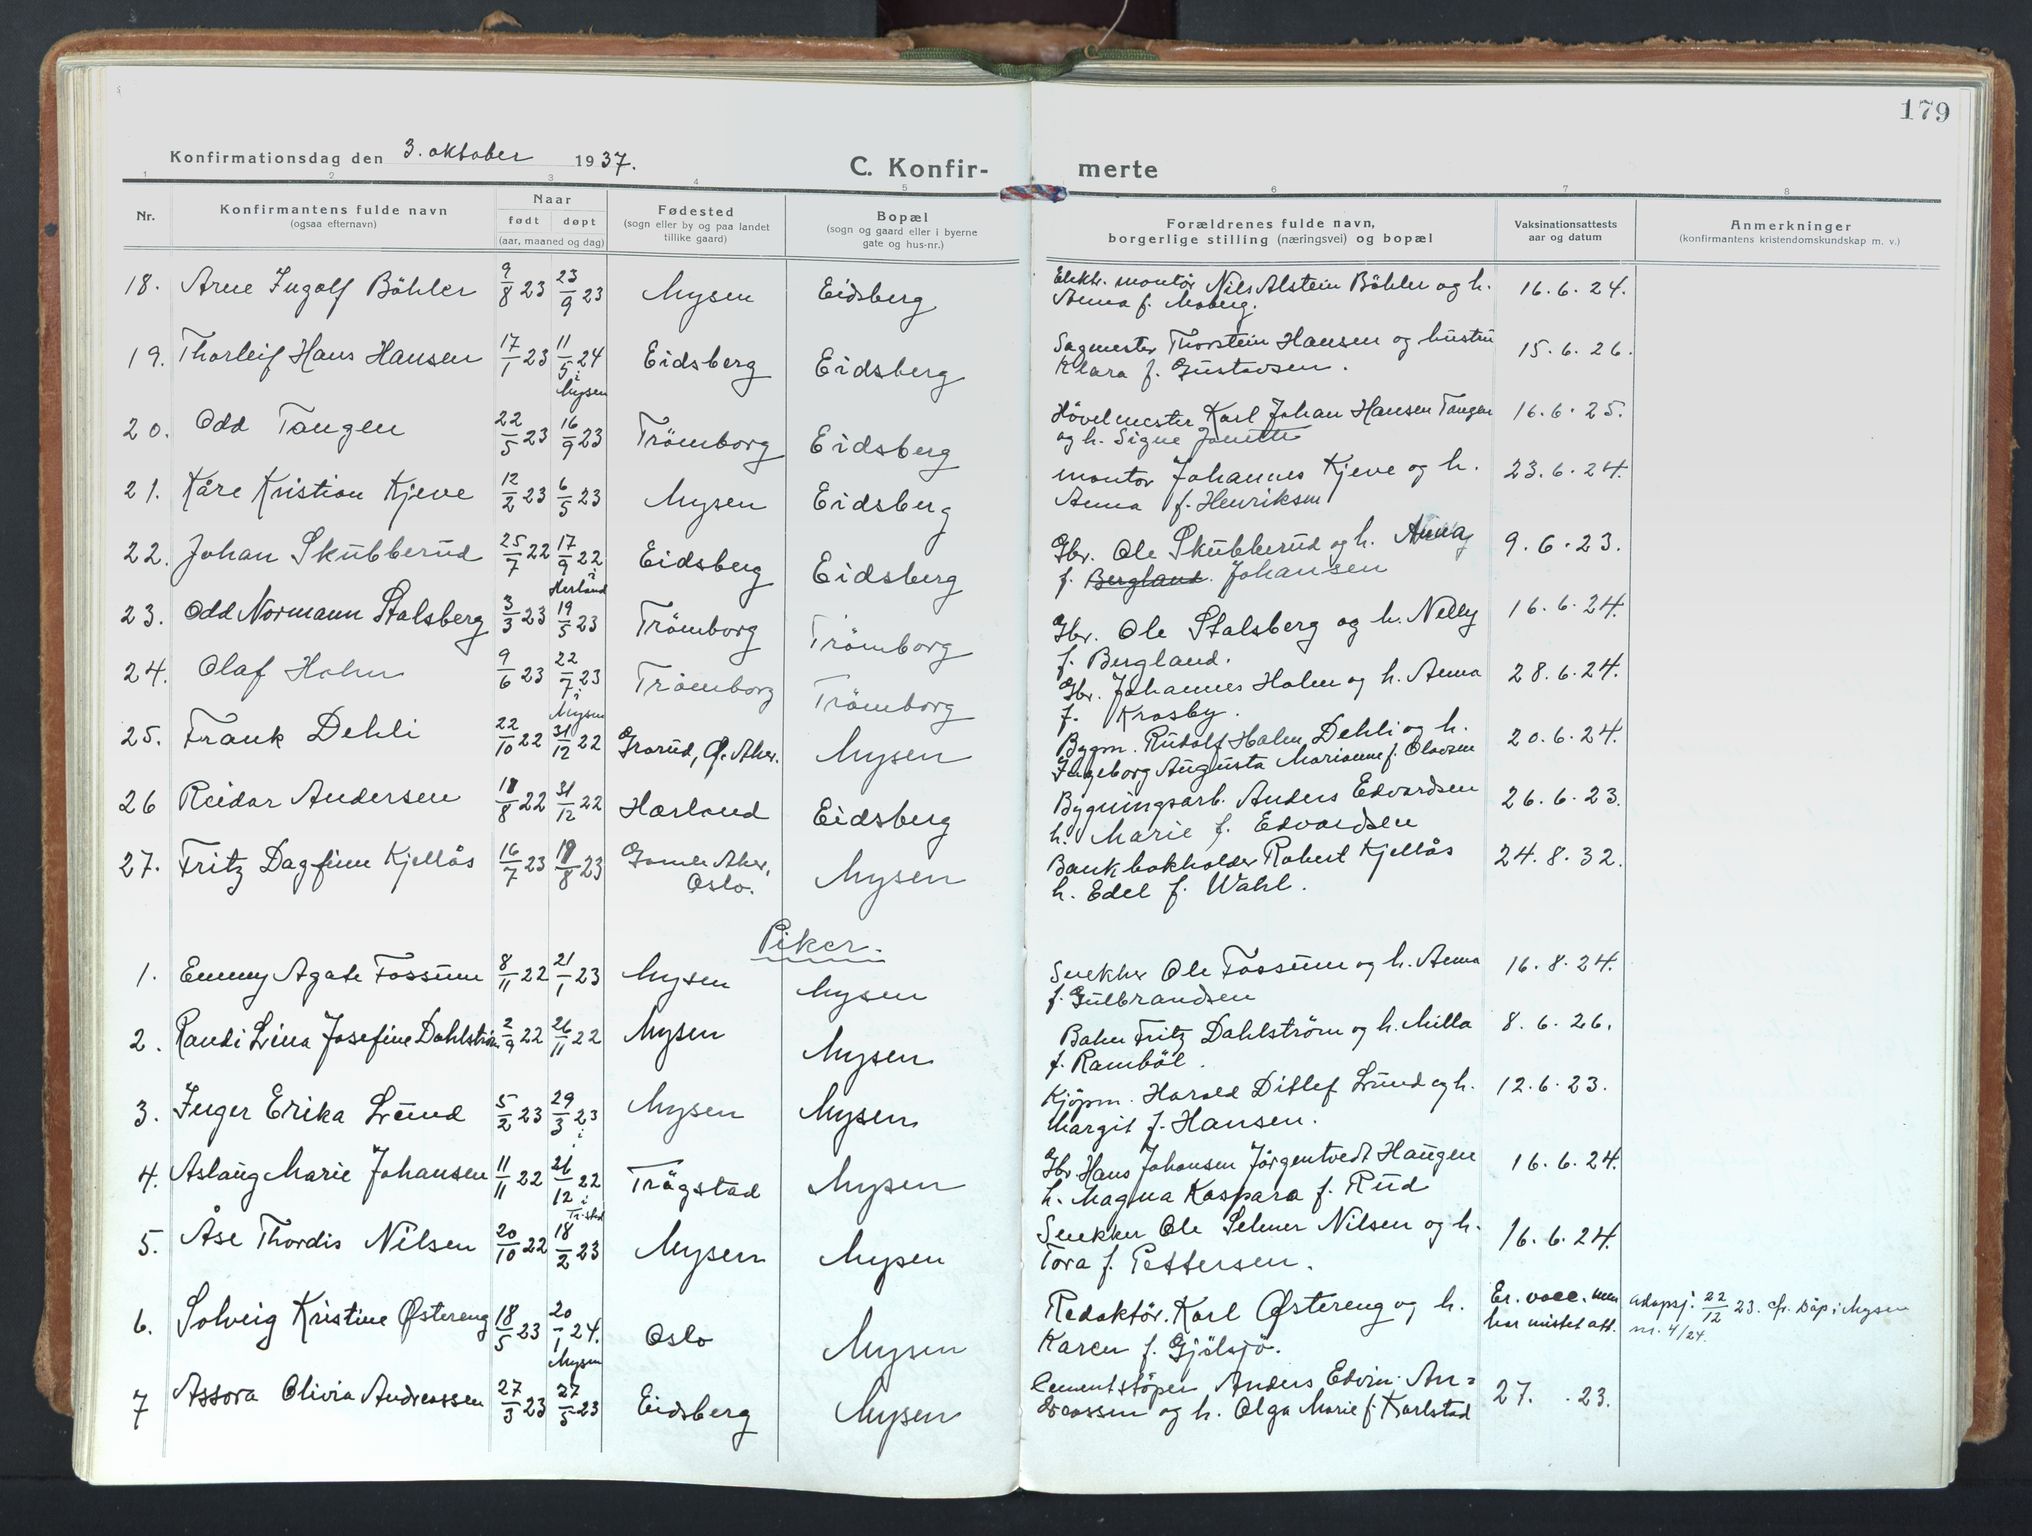 179
Konfirmationsdag den 3. oktober 1937.
C. Konfir- merte
1 2 3 4 5 6 7 8
Nr.
Konfirmantens fulde navn
(ogsaa efternavn)
Naar
født døpt
(aar, maaned og dag)
Fødested
(sogn eller by og paa landet
tillike gaard)
Bopæl
(sogn og gaard eller i byerne
gate og hus-nr.)
Forældrenes fulde navn,
borgerlige stilling (næringsvei) og bopæl
Vaksinationsattests
aar og datum
Anmerkninger
(konfirmantens kristendomskundskap m. v.)
18. Arne Ingolf Böhler 9/8 23 23/9 23 Mysen Eidsberg Elektr. montör Nils Alstein Böhler og h. 16.6.24.
Anna f. Moberg.
19. Thorleif Hans Hansen 17/1 23 11/5 24 Eidsberg Eidsberg Sagmester Thorstein Hansen og hustru 15.6.26.
i Mysen
Klara f. Gustavsen.
20. Odd Tangen 22/5 23 16/9 23 Trömborg Eidsberg Hövelmester Karl Johan Hansen Tangen 16.6.25.
og h. Signe Janette
21. Kåre Kristian Kjeve 12/2 23 6/5 23 Mysen Eidsberg montör Johannes Kjeve og h. 23.6.24.
Anna f. Henriksen
22. Johan Skubberud 25/7 22 17/9 22 Eidsberg Eidsberg Gbr. Ole Skubberud og h. Anna 9.6.23.
i Herland
f. Bergland. Johansen
23. Odd Normann Stalsberg 3/3 23 19/5 23 Trömborg Trömborg Gbr. Ole Stalsberg og h. Nelly 16.6.24.
f. Bergland.
24. Olaf Holm 9/6 23 22/7 23 Trömborg Trömborg Gbr. Johannes Holm og h. Anna 28.6.24.
i Mysen
f. Krosby.
25. Frank Dehli 22/10 22 31/12 22 Grorud, Ö. Aker. Mysen Bygm. Rudolf Holm Dehli og h. 20.6.24.
Ingeborg Augusta Marianne f. Olavsen
26 Reidar Andersen 18/8 22 31/12 22 Hærland Eidsberg Bygningsarb. Anders Edvardsen 26.6.23.
h. Marie f. Edvardsen
27. Fritz Dagfinn Kjellås 16/7 23 19/8 23 Gamle Aker, Mysen Bankbokholder Robert Kjellås 24.8.32.
Oslo.
h. Edel f. Wahl.
Piker.
1. Emmy Agate Fossum 8/11 22 21/1 23 Mysen Mysen Snekker Ole Fossum og h. Anna 16.8.24.
f. Gulbrandsen
2. Randi Lina Josefine Dahlström 2/9 22 26/11 22 Mysen Mysen Baker Fritz Dahlström og h. Milla 8.6.26.
f. Ramböl.
3. Inger Erika Lund 5/2 23 29/3 23 Mysen Mysen Kjöpm. Harald Ditlef Lund og h. 12.6.23.
Margit f. Hansen.
4. Aslaug Marie Johansen 11/11 22 26/12 22 Trögstad Mysen Gbr. Hans Johansen Jörgentvedt Haugen 16.6.24.
h. Magna Kaspara f. Rud
5. Åse Thordis Nilsen 20/10 22 18/2 23 Mysen Mysen Snekker Ole Selmer Nilsen og h. 16.6.24.
Tora f. Pettersen.
6. Solveig Kristine Østereng 18/5 23 20/1 24. Oslo Mysen Redaktör Karl Østereng og h. Er. vacc. men adopsj. 22/12 23. cfr. Dåp i Mysen
Mysen
Karen f. Gjölsjö. har mistet att. nr. 4/24.
7 Assora Olivia Andreassen 27/3 23 27/5 23 Eidsberg Mysen Cementstöper Anders Edvin An= 27. .23.
dreassen og h. Olga Marie f. Karlstad